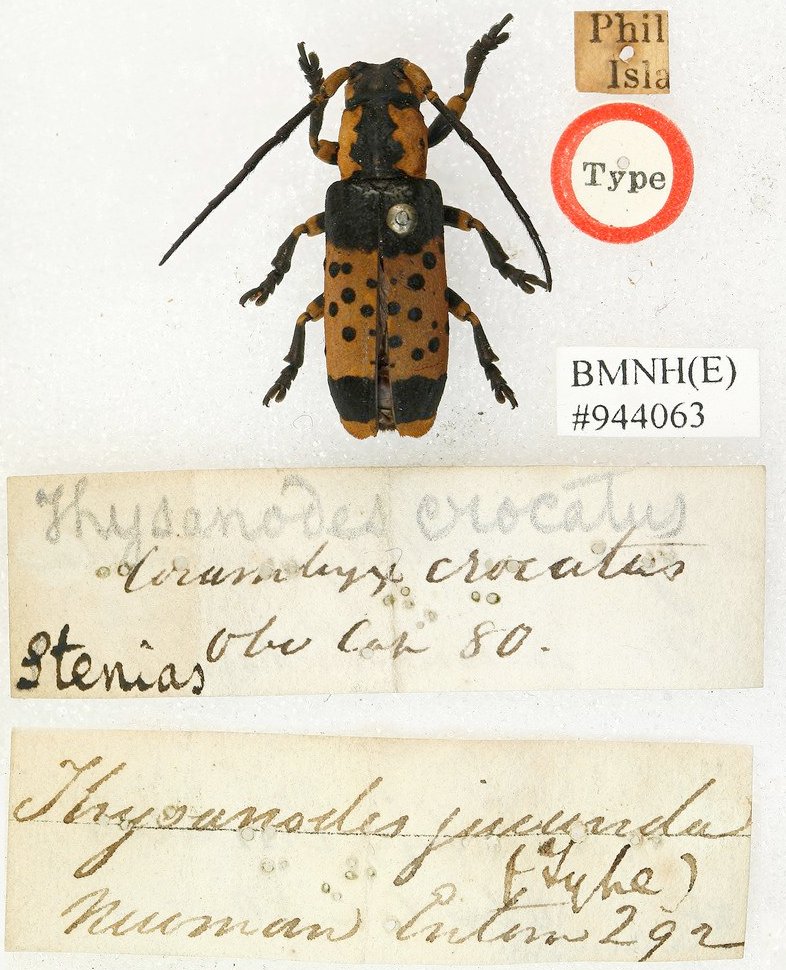 Phil
Isla
Type
BMNH(E)
#944063
Thysanodes crocatus
crocatus
Stenias
80.
Thysanodes jucunda
(Type)
Newman Entom 292